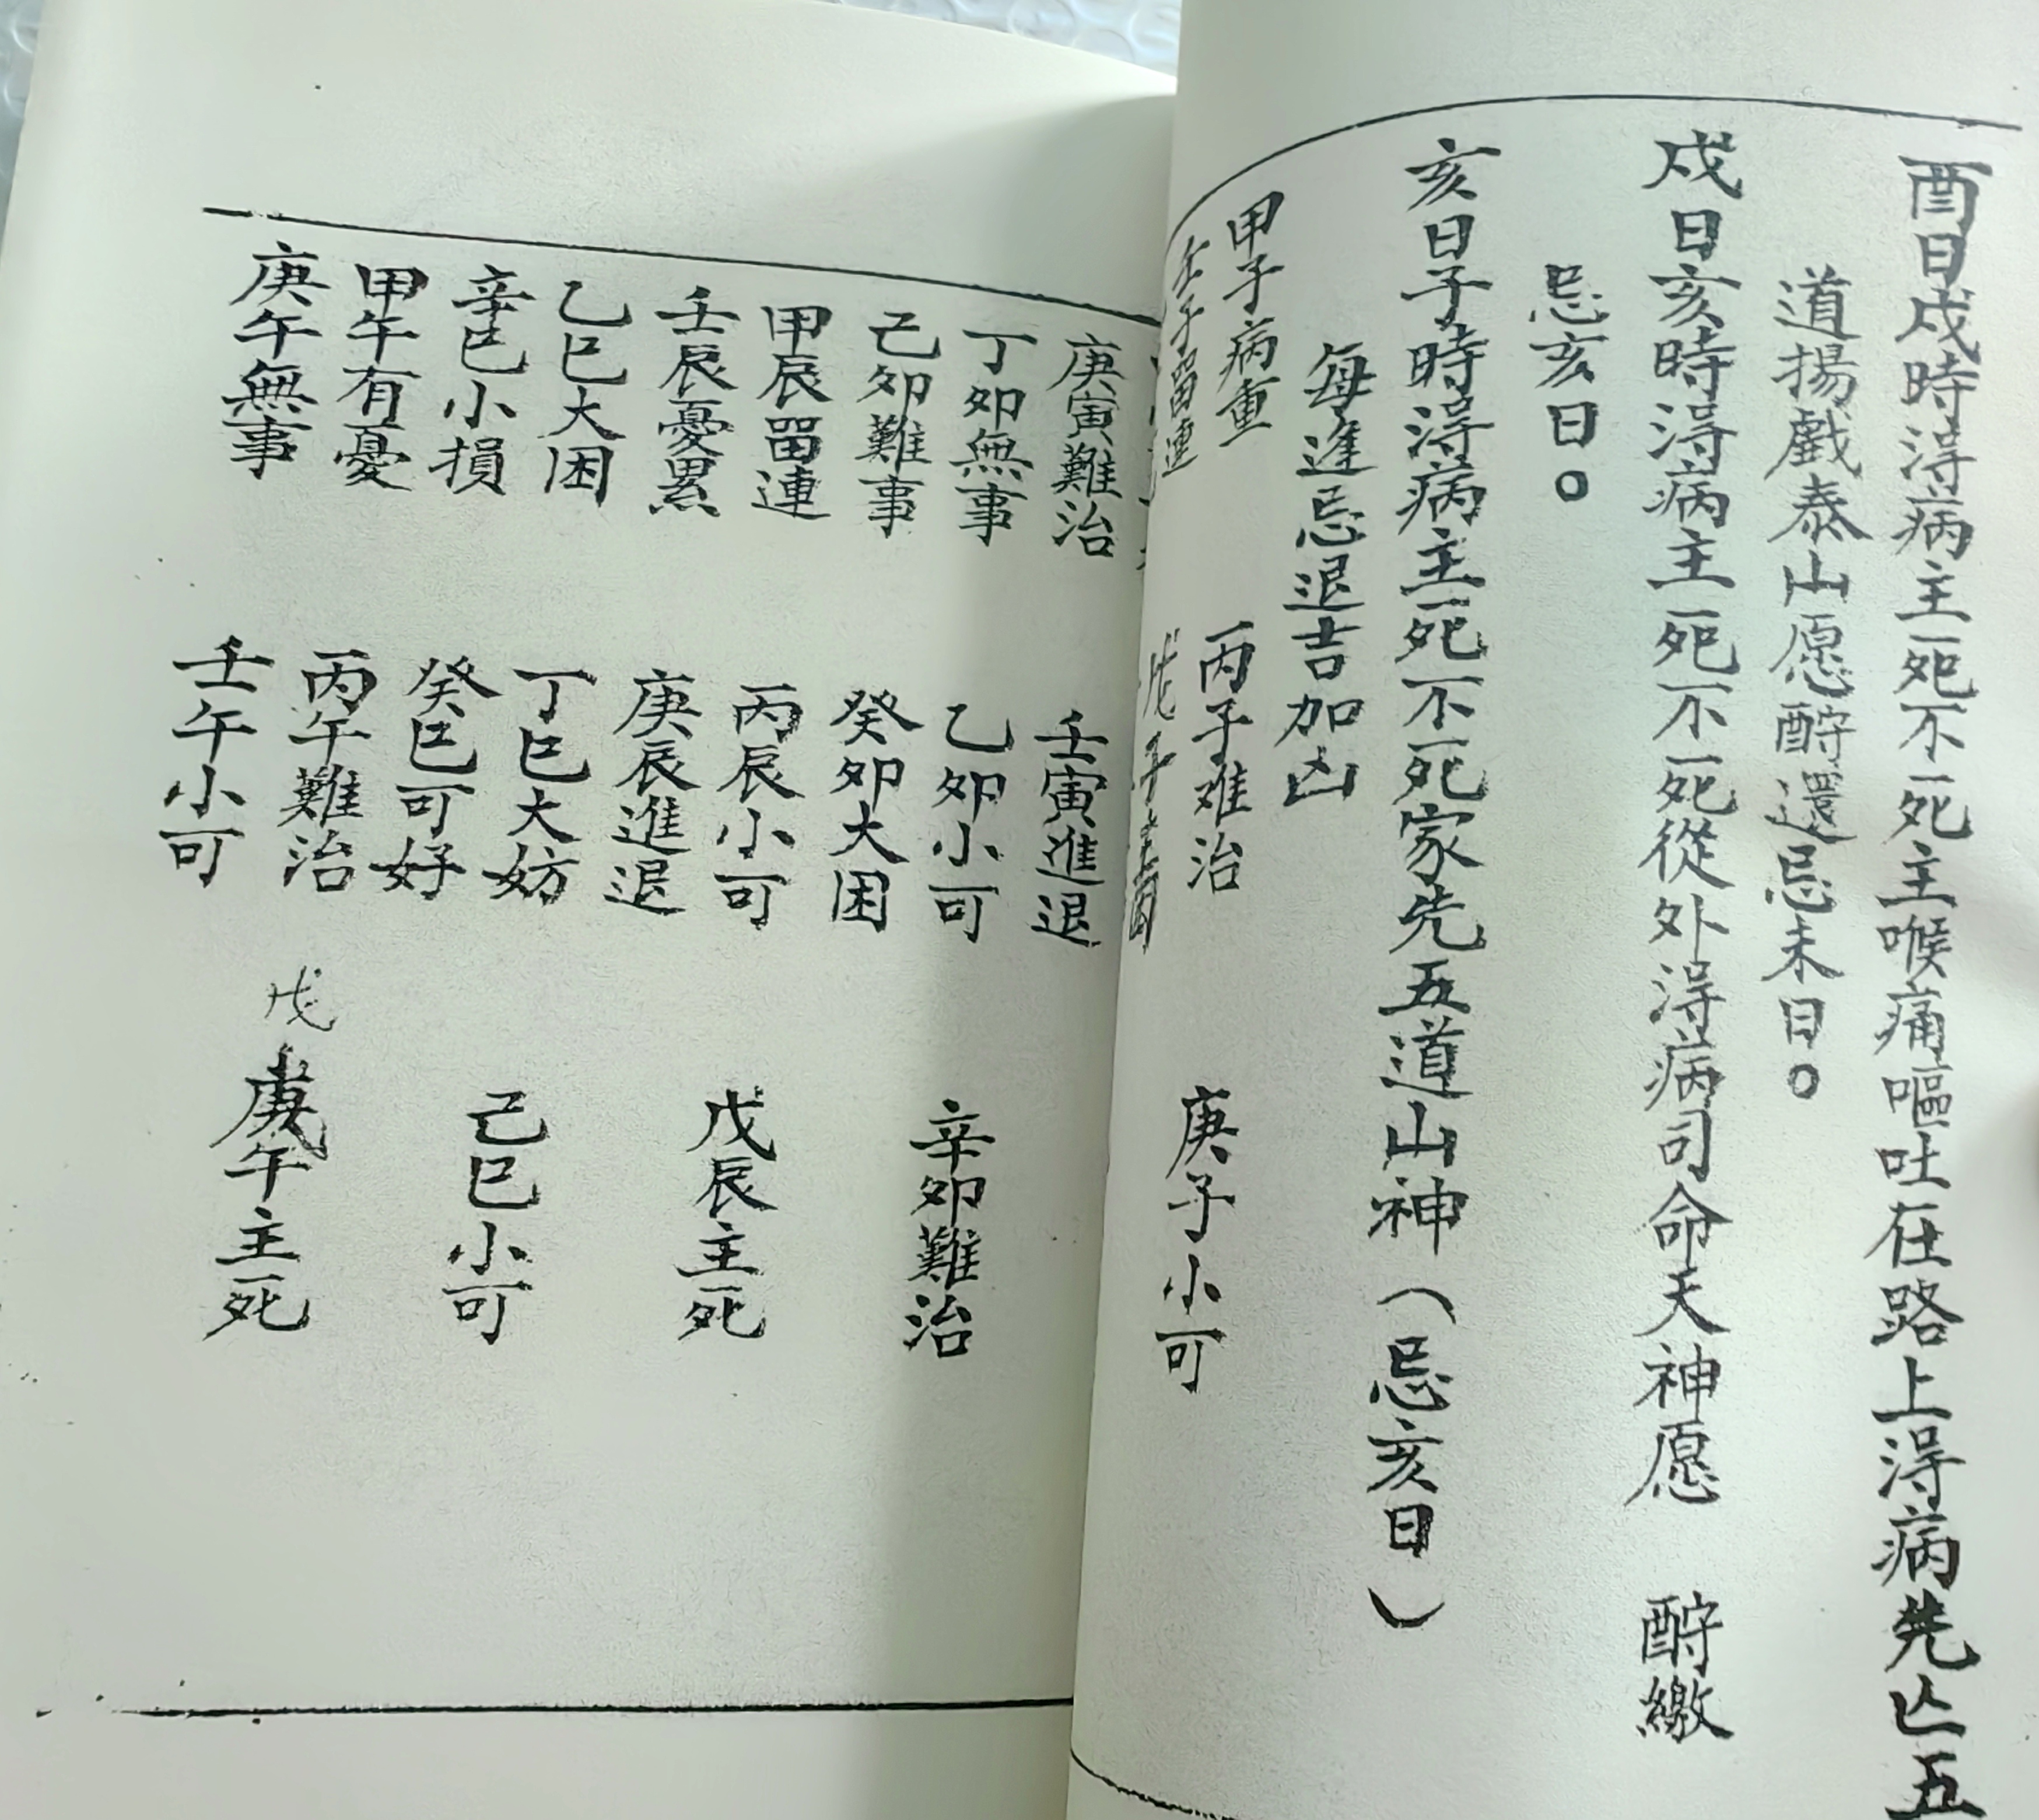 酉日戌時淂病主死不死主喉痛嘔吐在路上淂病先亡五
道揚戲泰山愿酧還忌未日。
戌日亥時淂病主死不死從外淂病司命天神愿 酧繳
忌亥日。
亥日子時淂病主死不死家先五道山神（忌亥日）
每進忌退吉加凶
甲子病重 丙子难治 庚子小可
壬子畱連 戊子
庚寅難治 壬寅進退
丁卯無事 乙卯小可 辛卯難治
己卯難事 癸卯大困
甲辰畱連 丙辰小可 戊辰主死
壬辰憂累 庚辰進退
乙巳大困 丁巳大妨 己巳小可
辛巳小損 癸巳可好
甲午有憂 丙午難治 戊庚午主死
庚午無事 壬午小可